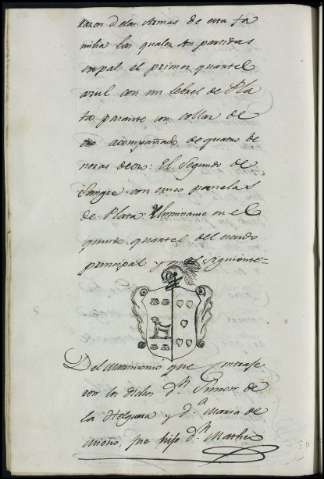 razon de las Armas de esta fa
milia las quales son partidas
en pal el primer quartel
azul con un lebrel de Pla
ta parante con collar de
oro acompañado de quatro de
de oro: El segundo de
Sangre con cinco panelas
de Plata Yluminanse en el
quinto quartel del escudo
principal y es el siguiente=
Del matrimonio que contrajo
con la dicha Dn. Simon de
la Helguera y Da. Maria de
fue hijo Dn. Matheo